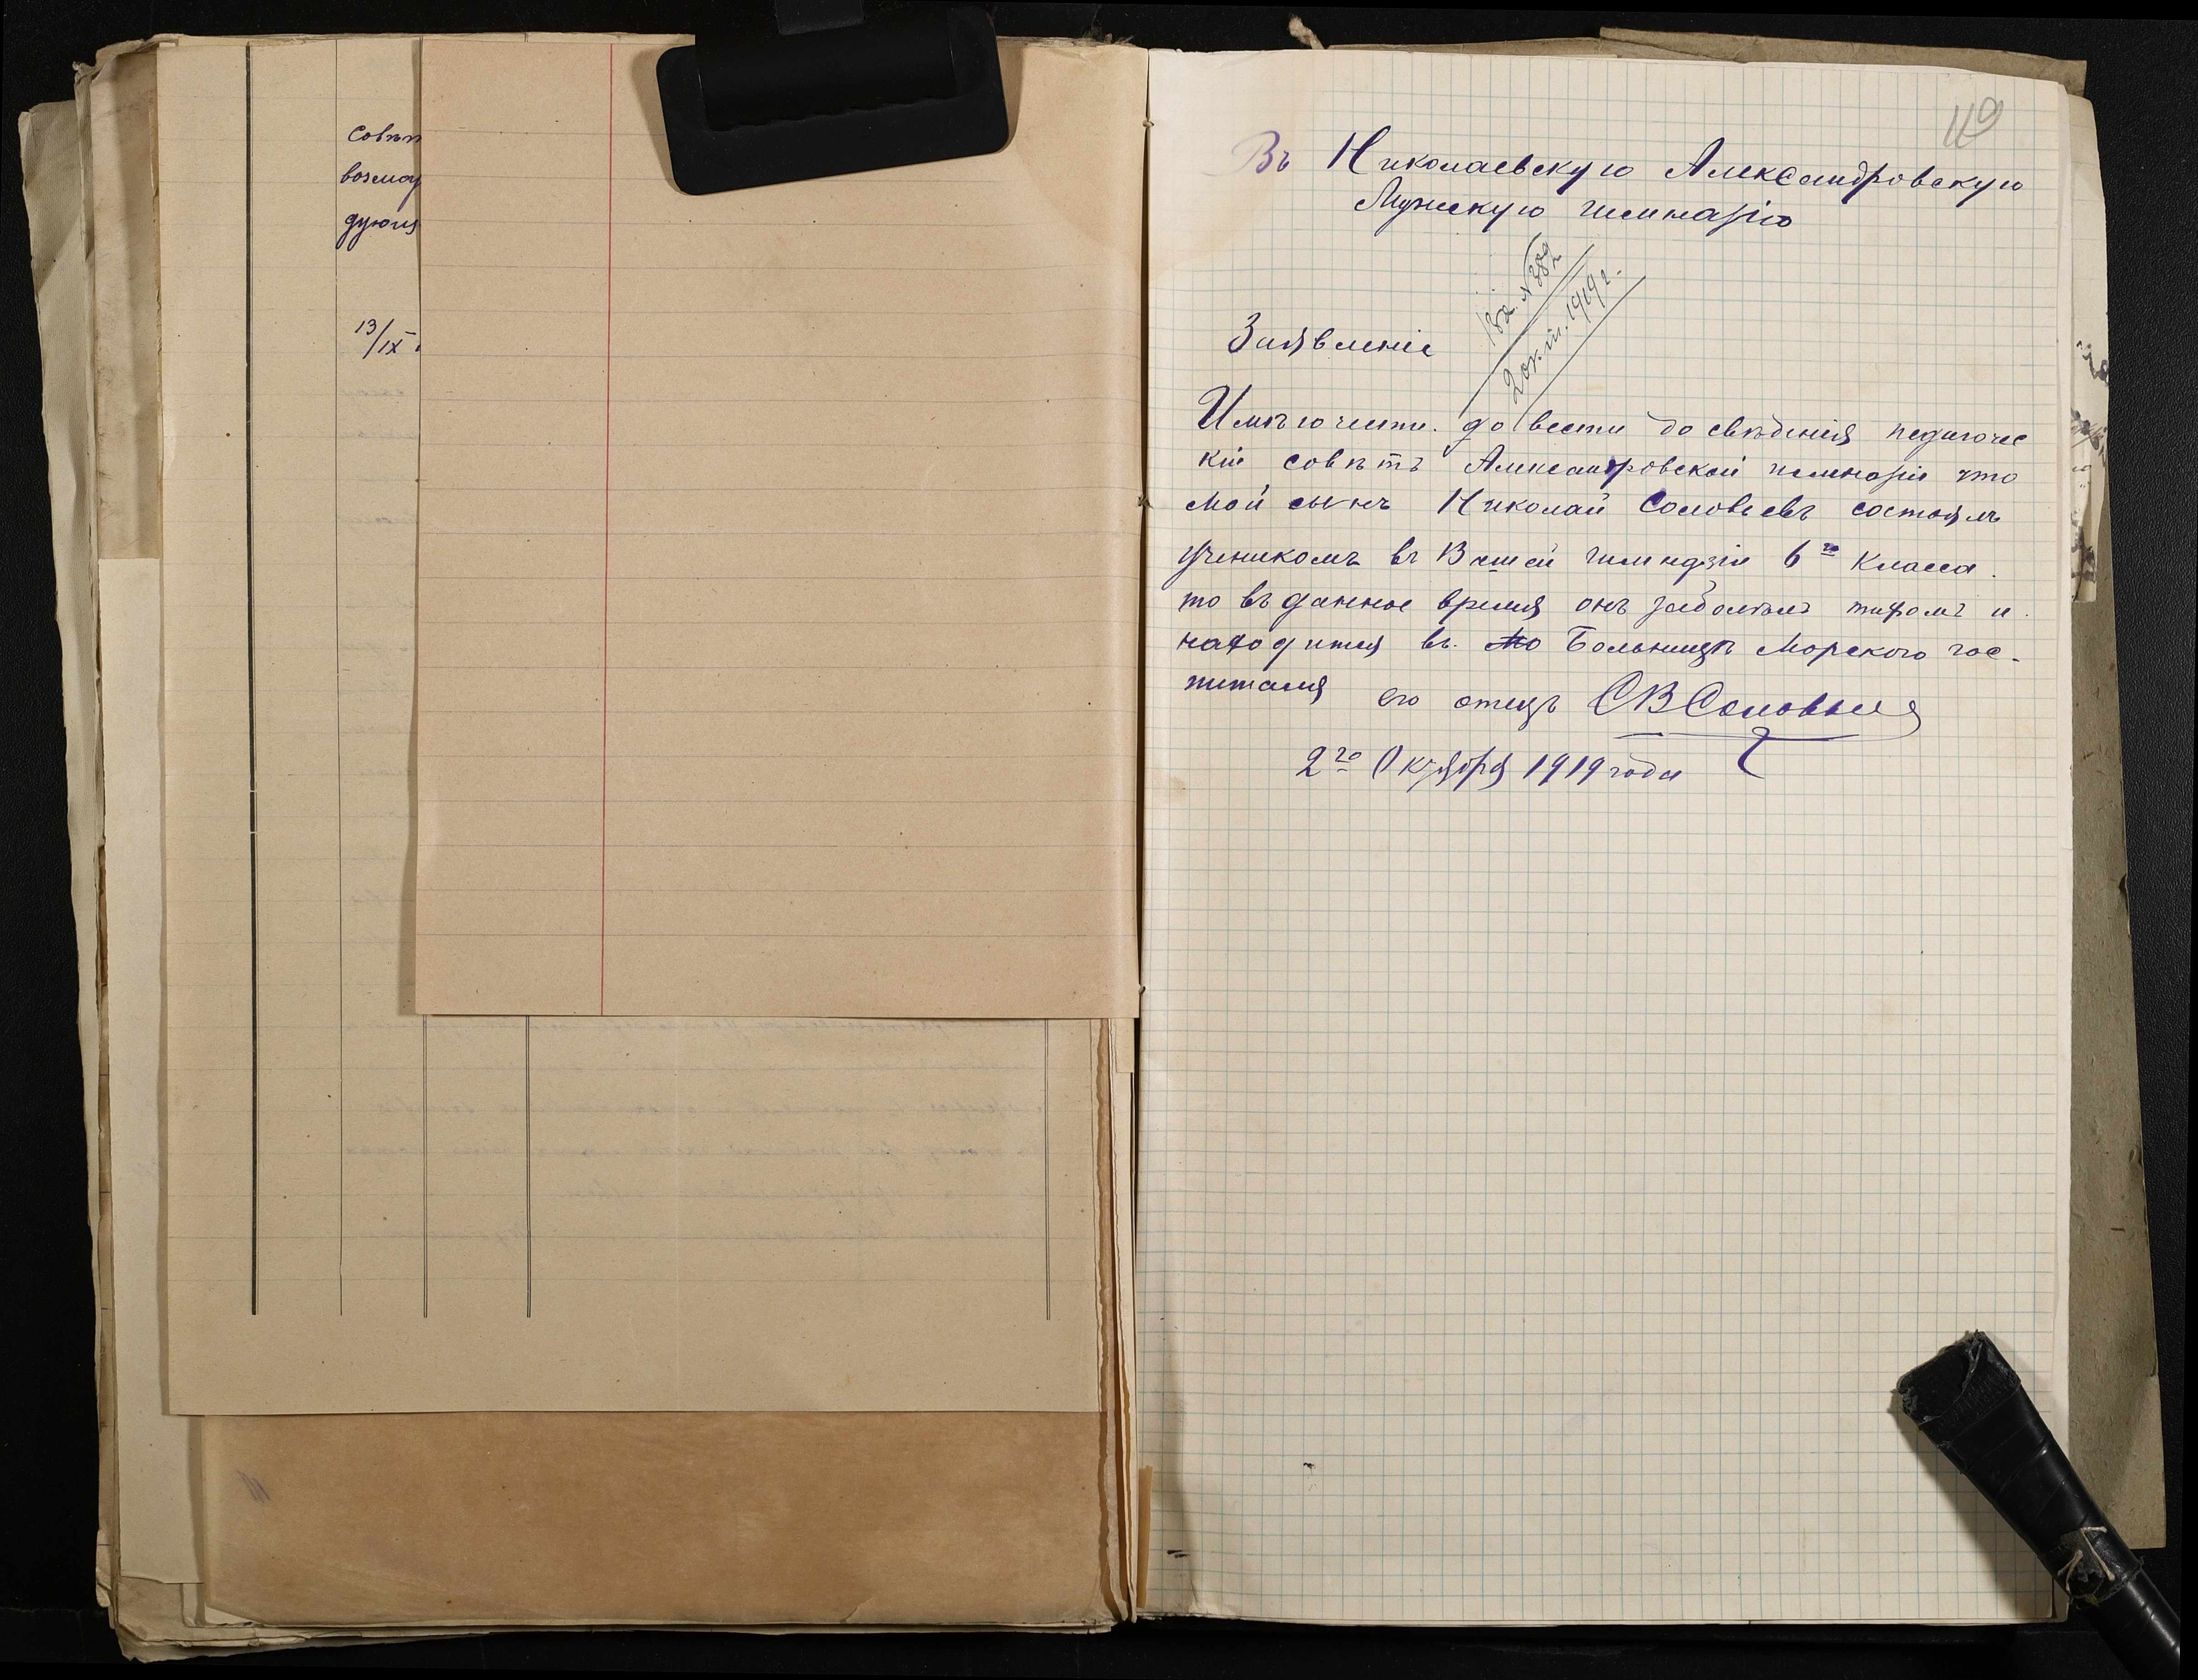 Совѣт
возмож
дующ
13/IX
119
Въ Николаевскую Александровскую
Мужскую гимназію
Вх. № 382
2 окт. 1919 г.
Заявленіе
Имѣю честь довести до свѣдѣнія педагогчес
кій совѣтъ Александровской гимназіи что
мой сынъ Николай Соловьевъ состоялъ
ученикомъ въ Вашей гимндзіи 6го класса.
то въ данное время онъ заболѣлъ тифомъ и
находится въ Больницѣ Морского гос-
питаля его отецъ СВСоловьев
2го Октября 1919 года